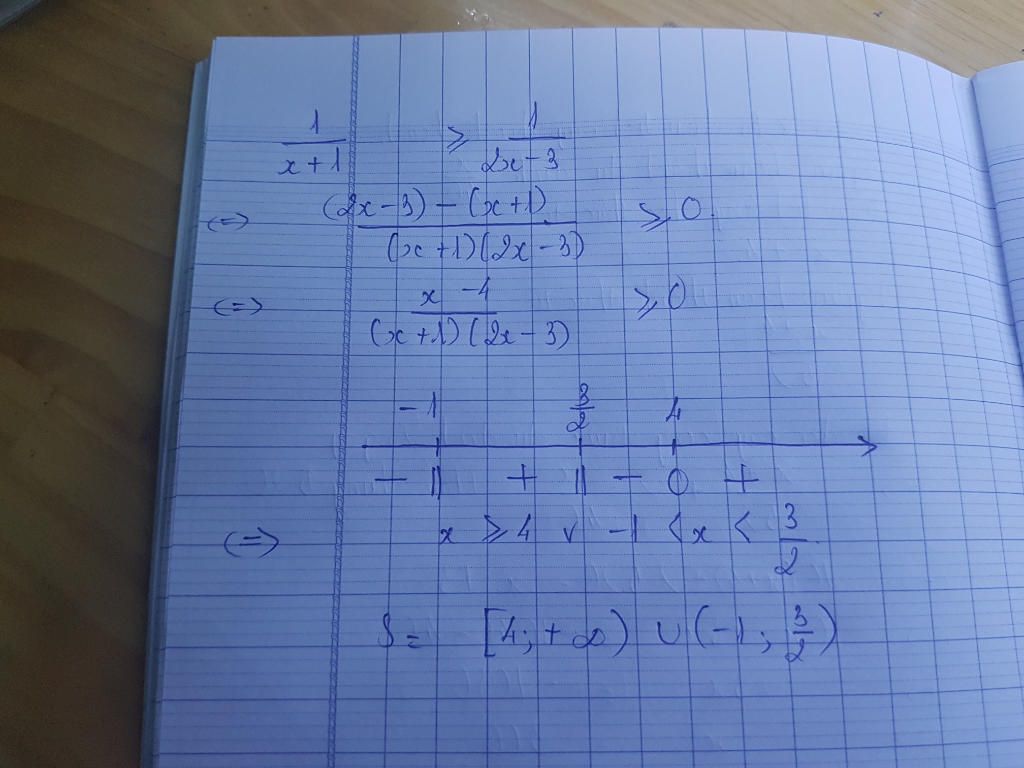 1/(x+1) ⩾ 1/(2x-3)
(=) ((2x-3) - (x+1))/((x+1)(2x-3)) ⩾ 0
(=) (x-4)/((x+1)(2x-3)) ⩾ 0
-1 3/2 4
- || + || - 0 +
(=) x ⩾ 4 ∨ -1 < x < 3/2
S = [4; +∞) ∪ (-1; 3/2)